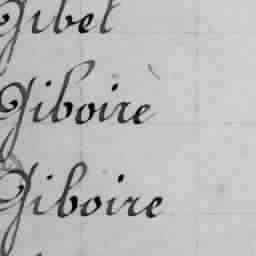 Gibet
Giboire
Giboire